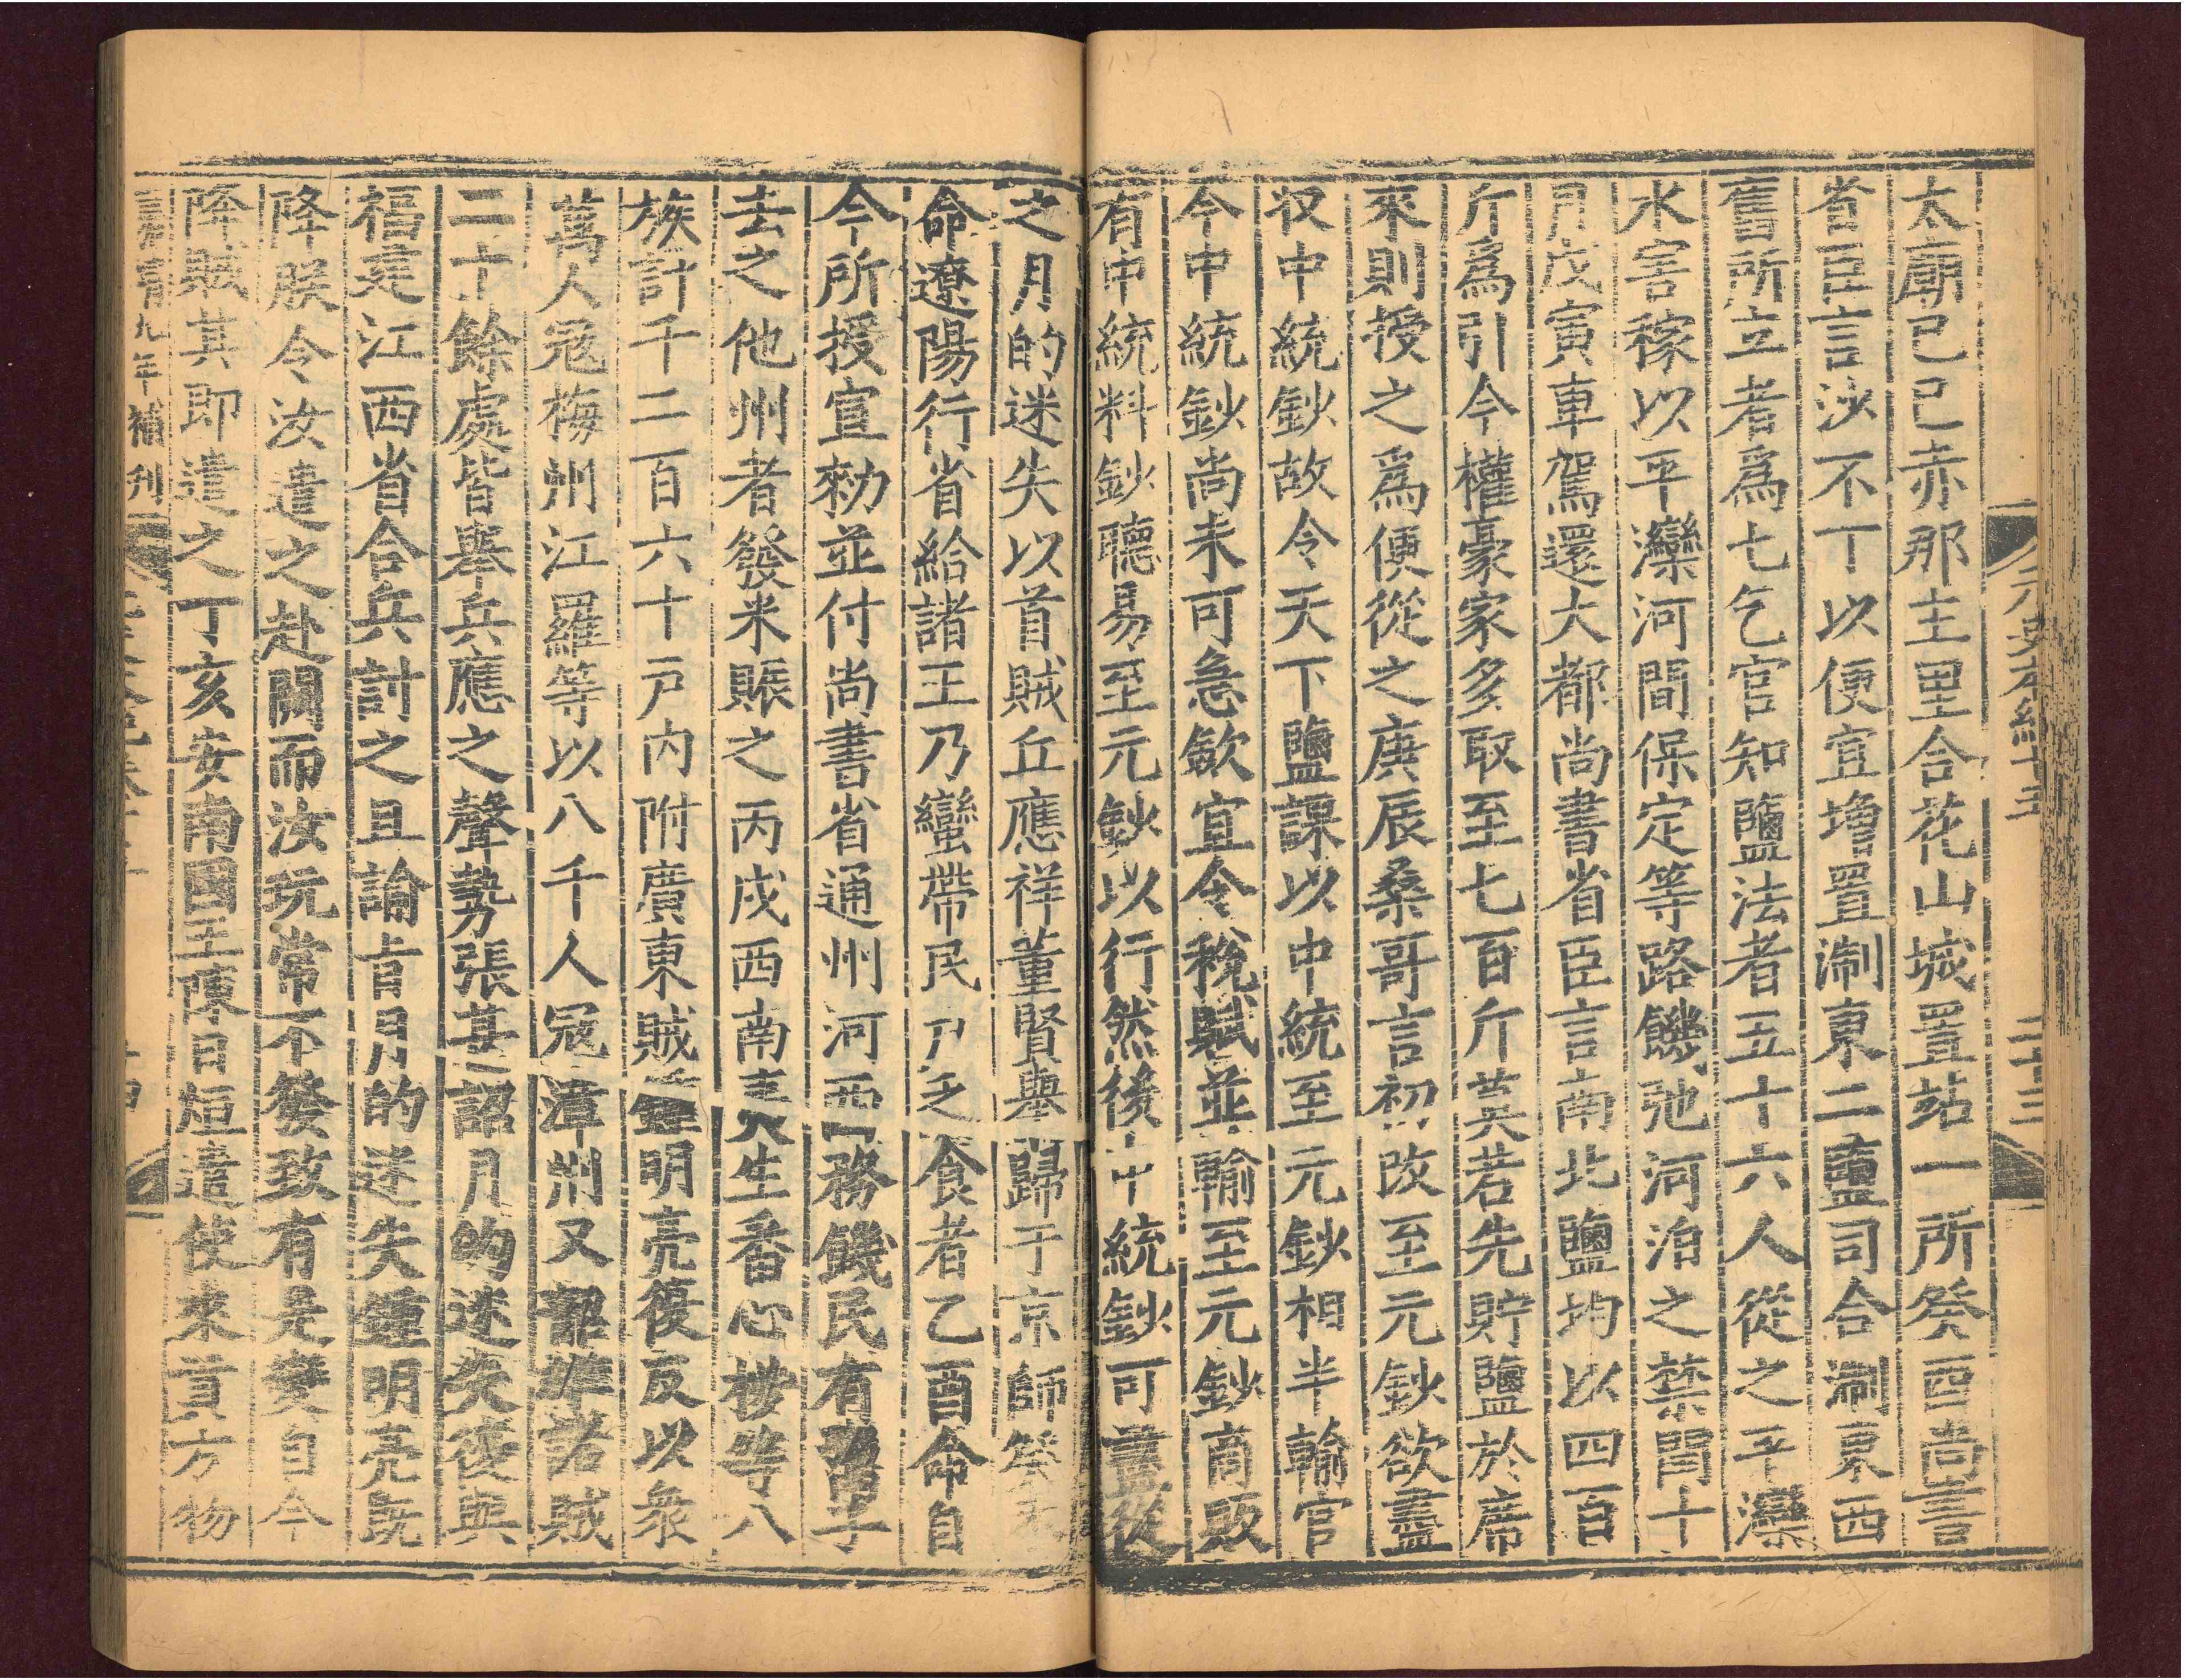 元史本紀十五　二十三
太廟己巳赤那主里合花山城置站一所癸酉尚書
省臣言沙不丁以便宜增置浙東二鹽司合浙東西
舊所立者爲七乞官知鹽法者五十六人從之平灤
水害稼以平灤河間保定等路饑弛河泊之禁閏十
月戊寅車駕還大都尚書省臣言南北鹽均以四百
斤爲引今權豪家多取至七百斤莫若先貯鹽於席
來則授之爲便從之庚辰桑哥言初改至元鈔欲盡
收中統鈔故令天下鹽課以中統至元鈔相半輸官
今中統鈔尚未可急斂宜令稅賦並輸至元鈔商販
有中統料鈔聽易至元鈔以行然後中統鈔可盡從
之月的迷失以首賊丘應祥董賢舉歸于京師癸未
命遼陽行省給諸王乃蠻帶民戶乏食者乙酉命自
今所授宣勑並付尚書省通州河西務饑民有鬻子
去之他州者發米賑之丙戌西南夷生番心樓等八
族計千二百六十戶內附廣東賊鍾明亮復反以衆
萬人寇梅州江羅等以八千人寇漳州又韶雄諸賊
二十餘處皆舉兵應之聲勢張甚詔月的迷失復與
福建江西省合兵討之且諭旨月的迷失鍾明亮既
降朕令汝遣之赴闕而汝玩常不發致有是變自今
降賊其即遣之丁亥安南國王陳日烜遣使來貢方物
九年補刊